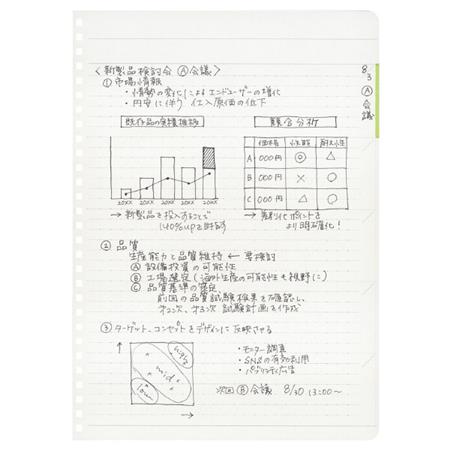 〈新製品検討会 Ⓐ会議〉
8/3 Ⓐ会議
① 市場情報
・情勢の変化によるエンドユーザーの増化
・円安に伴う 仕入原価の低下
既存品の実績推移
競合分析
価格 性能 耐久性
A 000円 ◎ △
B 000円 × ○
C 000円 △ △
20XX 20XX 20XX 20XX 20XX
→ 新製品を投入することで
40%upを目指す
→ 差別化ポイントを
より明確化!
② 品質
生産能力と品質維持 ← 要検討
Ⓐ 設備投資の可能性
Ⓑ 工場選定(海外生産の可能性も視野に)
Ⓒ 品質基準の策定
前回の品質試験結果を確認し、
第2次、第3次 試験計画を作成
③ ターゲット、コンセプトをデザインに反映させる
high
mid
low
・モニター調査
・SNSの有効利用
・パブリシティ広告
次回 Ⓑ会議 8/30 13:00〜